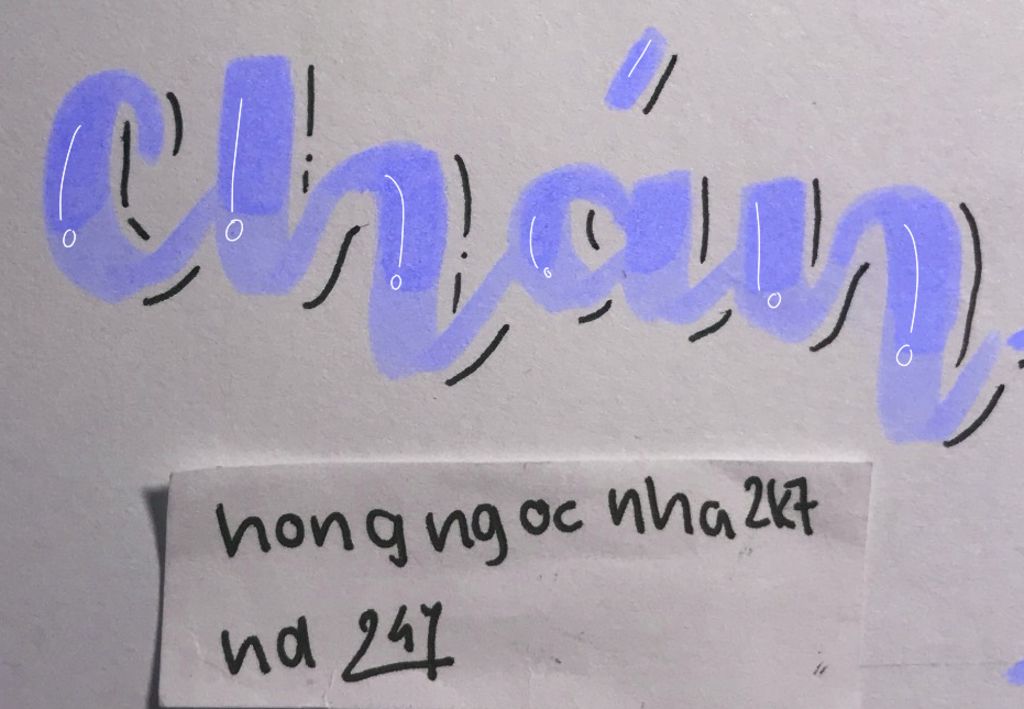 Chán
hongngocnha2k7
na 247